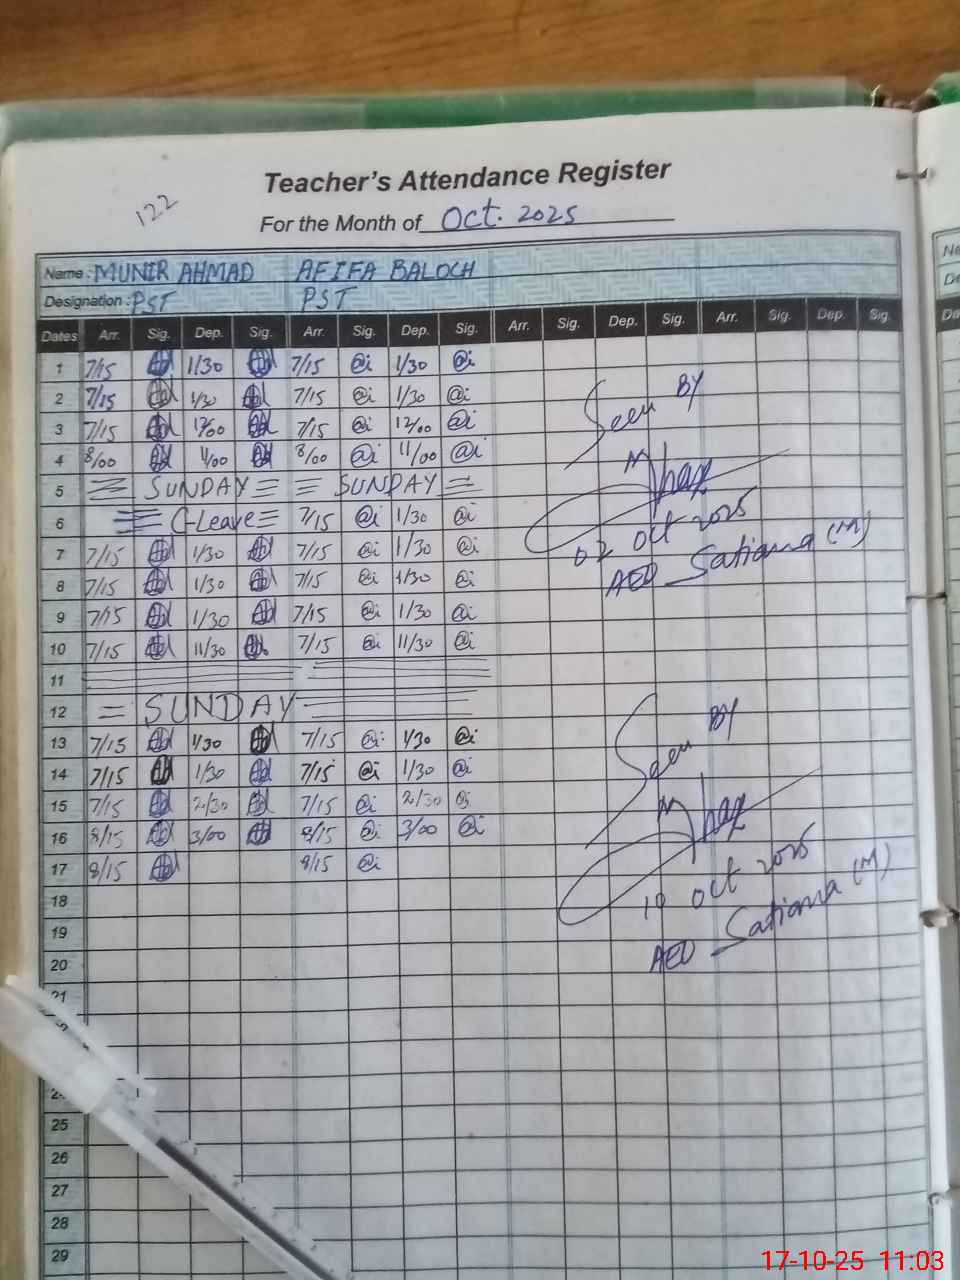 Teacher's Attendance Register
122
For the Month of Oct. 2025
Name: MUNIR AHMAD AFIFA BALOCH
Designation: PST PST
Dates Arr. Sig. Dep. Sig. Arr. Sig. Dep. Sig. Arr. Sig. Dep. Sig. Arr. Sig. Dep. Sig.
1 7/15 1/30 7/15 @i 1/30 @i
2 7/15 1/30 7/15 @i 1/30 @i
3 7/15 12/00 7/15 @i 12/00 @i
4 8/00 11/00 8/00 @i 11/00 @i
5 SUNDAY SUNDAY
6 C-Leave 7/15 @i 1/30 @i
7 7/15 1/30 7/15 @i 1/30 @i
8 7/15 1/30 7/15 @i 1/30 @i
9 7/15 1/30 7/15 @i 1/30 @i
10 7/15 11/30 7/15 @i 11/30 @i
11
12 = SUNDAY
13 7/15 1/30 7/15 @i 1/30 @i
14 7/15 1/30 7/15 @i 1/30 @i
15 7/15 2/30 7/15 @i 2/30 @i
16 8/15 3/00 8/15 @i 3/00 @i
17 8/15 8/15 @i
18
19
20
21
25
26
27
28
29
Seen BY
02 Oct 2025
AEO Satiana (M)
Seen BY
Oct 2025
AEO Satiana (M)
17-10-25 11:03